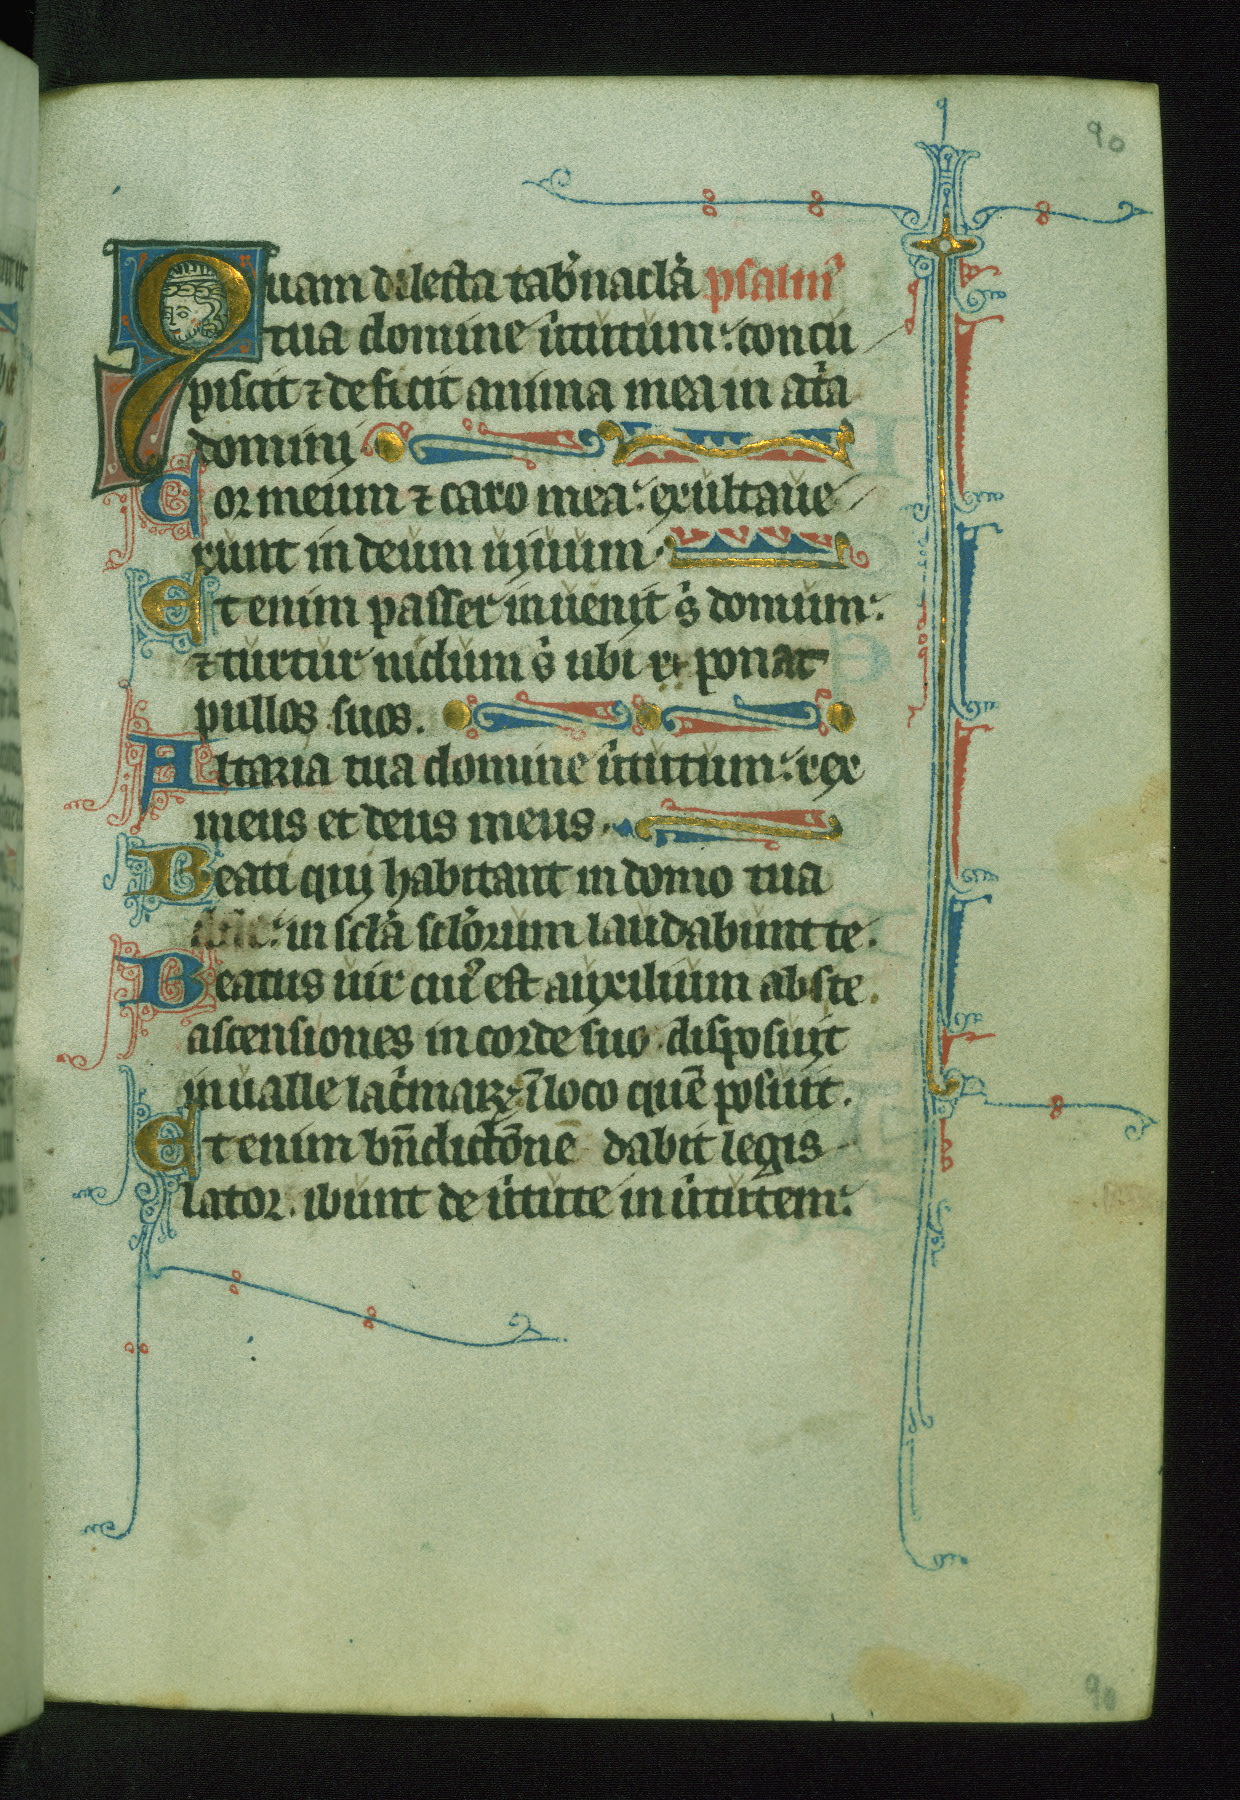 90
Quam dilecta tab'nacla psalm'
tua domine u'tutum: concu
piscit ⁊ deficit anima mea in at'a
domini
Cor meum ⁊ caro mea: exultaue
runt in deum uiuum.
Et enim passer inuenit s' domum:
⁊ turtur nidum s' ubi ponat
pullos suos.
Altaria tua domine u'tutum: rex
meus et deus meus.
Beati qui habitant in domo tua
: in scl'a scl'orum laudabunt te.
Beatus uir cui' est auxilium abs te.
ascensiones in corde suo disposuit
in ualle lac'mar ī loco quē posuit.
Et enim bn̄dictōne dabit legis
lator. ibunt de u'tute in u'tutem:
90